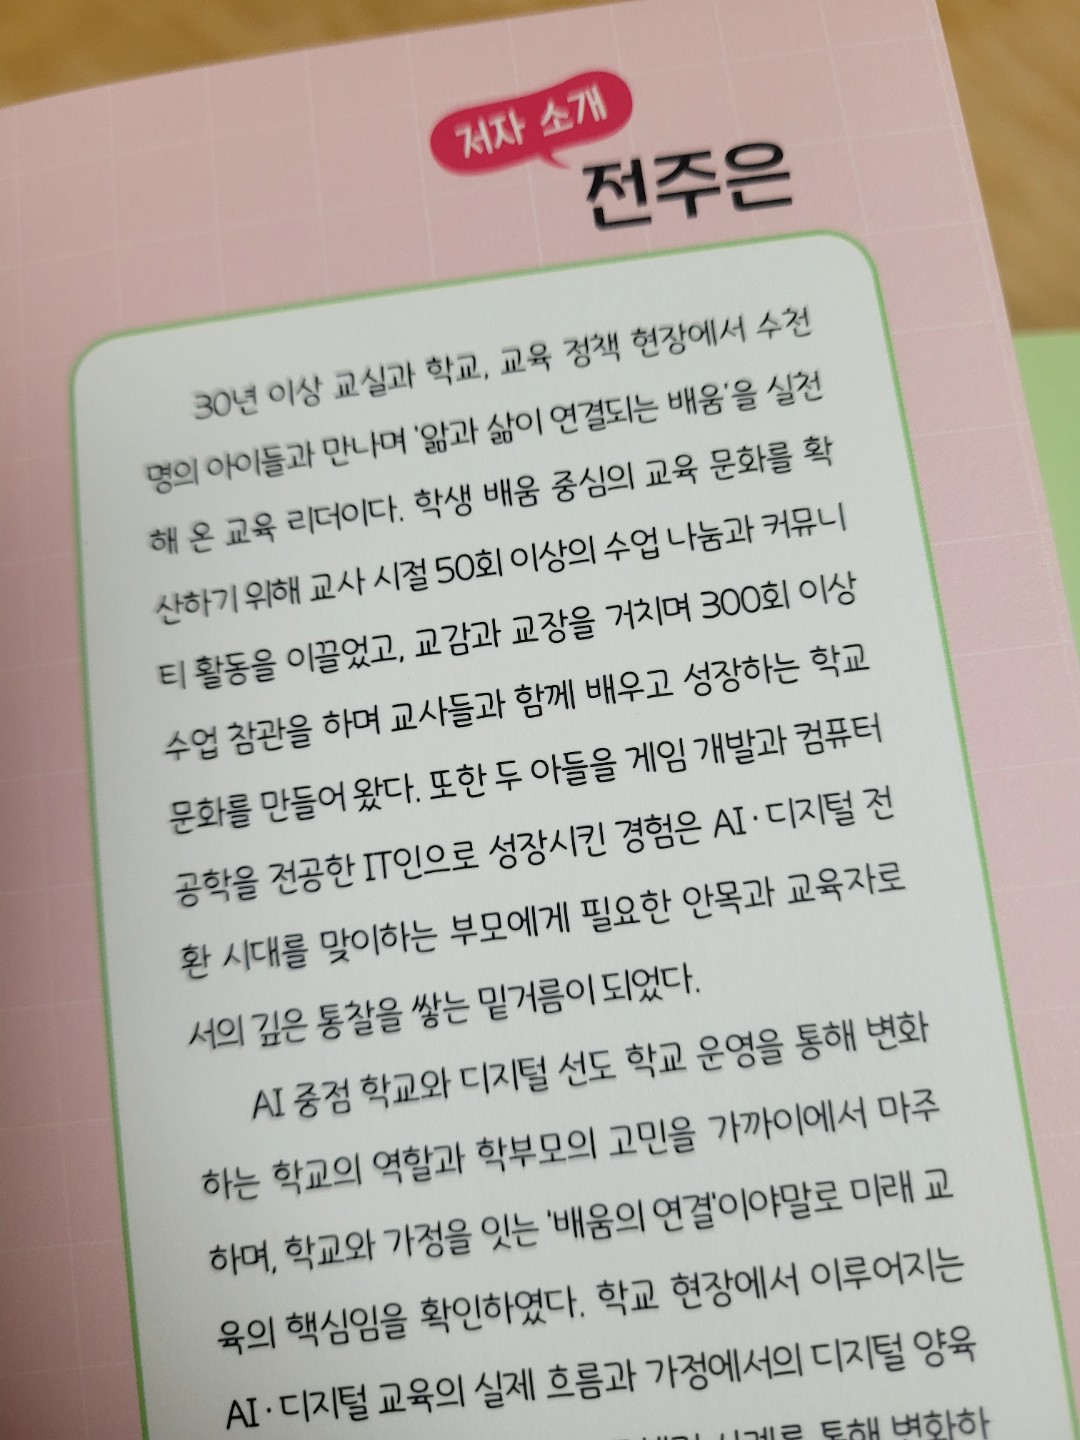 저자 소개
전주은
30년 이상 교실과 학교, 교육 정책 현장에서 수천
명의 아이들과 만나며 '앎과 삶이 연결되는 배움'을 실천
해 온 교육 리더이다. 학생 배움 중심의 교육 문화를 확
산하기 위해 교사 시절 50회 이상의 수업 나눔과 커뮤니
티 활동을 이끌었고, 교감과 교장을 거치며 300회 이상
수업 참관을 하며 교사들과 함께 배우고 성장하는 학교
문화를 만들어 왔다. 또한 두 아들을 게임 개발과 컴퓨터
공학을 전공한 IT인으로 성장시킨 경험은 AI·디지털 전
환 시대를 맞이하는 부모에게 필요한 안목과 교육자로
서의 깊은 통찰을 쌓는 밑거름이 되었다.
AI 중점 학교와 디지털 선도 학교 운영을 통해 변화
하는 학교의 역할과 학부모의 고민을 가까이에서 마주
하며, 학교와 가정을 잇는 '배움의 연결'이야말로 미래 교
육의 핵심임을 확인하였다. 학교 현장에서 이루어지는
AI·디지털 교육의 실제 흐름과 가정에서의 디지털 양육
사례를 통해 변화하